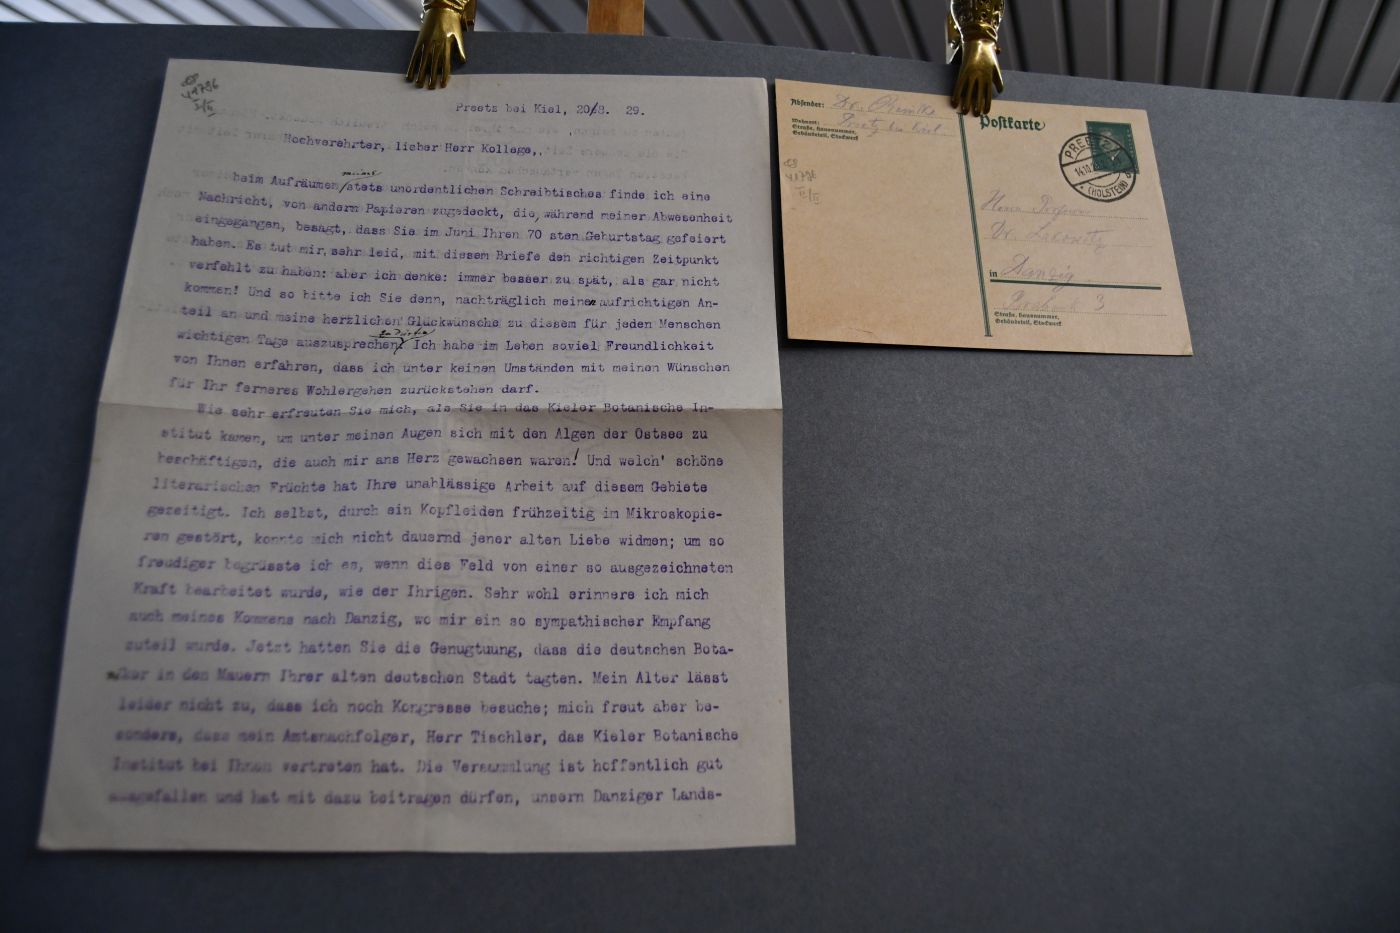 Preetz bei Kiel, 20/8. 29.
Hochverehrter, lieber Herr Kollege,
meines
beim Aufräumen/stets unordentlichen Schreibtisches finde ich eine
Nachricht, von andern Papieren zugedeckt, die, während meiner Abwesenheit
eingegangen, besagt, dass Sie im Juni Ihren 70 sten Geburtstag gefeiert
haben. Es tut mir sehr leid, mit diesem Briefe den richtigen Zeitpunkt
verfehlt zu haben: aber ich denke: immer besser zu spät, als gar nicht
kommen! Und so bitte ich Sie denn, nachträglich meinen aufrichtigen An-
teil an und meine herzlichen Glückwünsche zu diesem für jeden Menschen
zu dürfen
wichtigen Tage auszusprechen. Ich habe im Leben soviel Freundlichkeit
von Ihnen erfahren, dass ich unter keinen Umständen mit meinen Wünschen
für Ihr ferneres Wohlergehen zurückstehen darf.
Wie sehr erfreuten Sie mich, als Sie in das Kieler Botanische In-
stitut kamen, um unter meinen Augen sich mit den Algen der Ostsee zu
beschäftigen, die auch mir ans Herz gewachsen waren! Und welch' schöne
literarischen Früchte hat Ihre unablässige Arbeit auf diesem Gebiete
gezeitigt. Ich selbst, durch ein Kopfleiden frühzeitig im Mikroskopie-
ren gestört, konnte mich nicht dauernd jener alten Liebe widmen; um so
freudiger begrüsste ich es, wenn dies Feld von einer so ausgezeichneten
Kraft bearbeitet wurde, wie der Ihrigen. Sehr wohl erinnere ich mich
auch meines Kommens nach Danzig, wo mir ein so sympathischer Empfang
zuteil wurde. Jetzt hatten Sie die Genugtuung, dass die deutschen Bota-
niker in den Mauern Ihrer alten deutschen Stadt tagten. Mein Alter lässt
leider nicht zu, dass ich noch Kongresse besuche; mich freut aber be-
sonders, dass mein Amtsnachfolger, Herr Tischler, das Kieler Botanische
Institut bei Ihnen vertreten hat. Die Versammlung ist hoffentlich gut
ausgefallen und hat mit dazu beitragen dürfen, unsern Danziger Lands-
Absender: Dr.
Wohnort: Preetz bei Kiel
Straße, Hausnummer,
Gebäudeteil, Stockwerk
Postkarte
PREETZ
14.10.
(HOLSTEIN)
Herrn Professor
Dr. Lakowitz
in Danzig
3
Straße, Hausnummer,
Gebäudeteil, Stockwerk